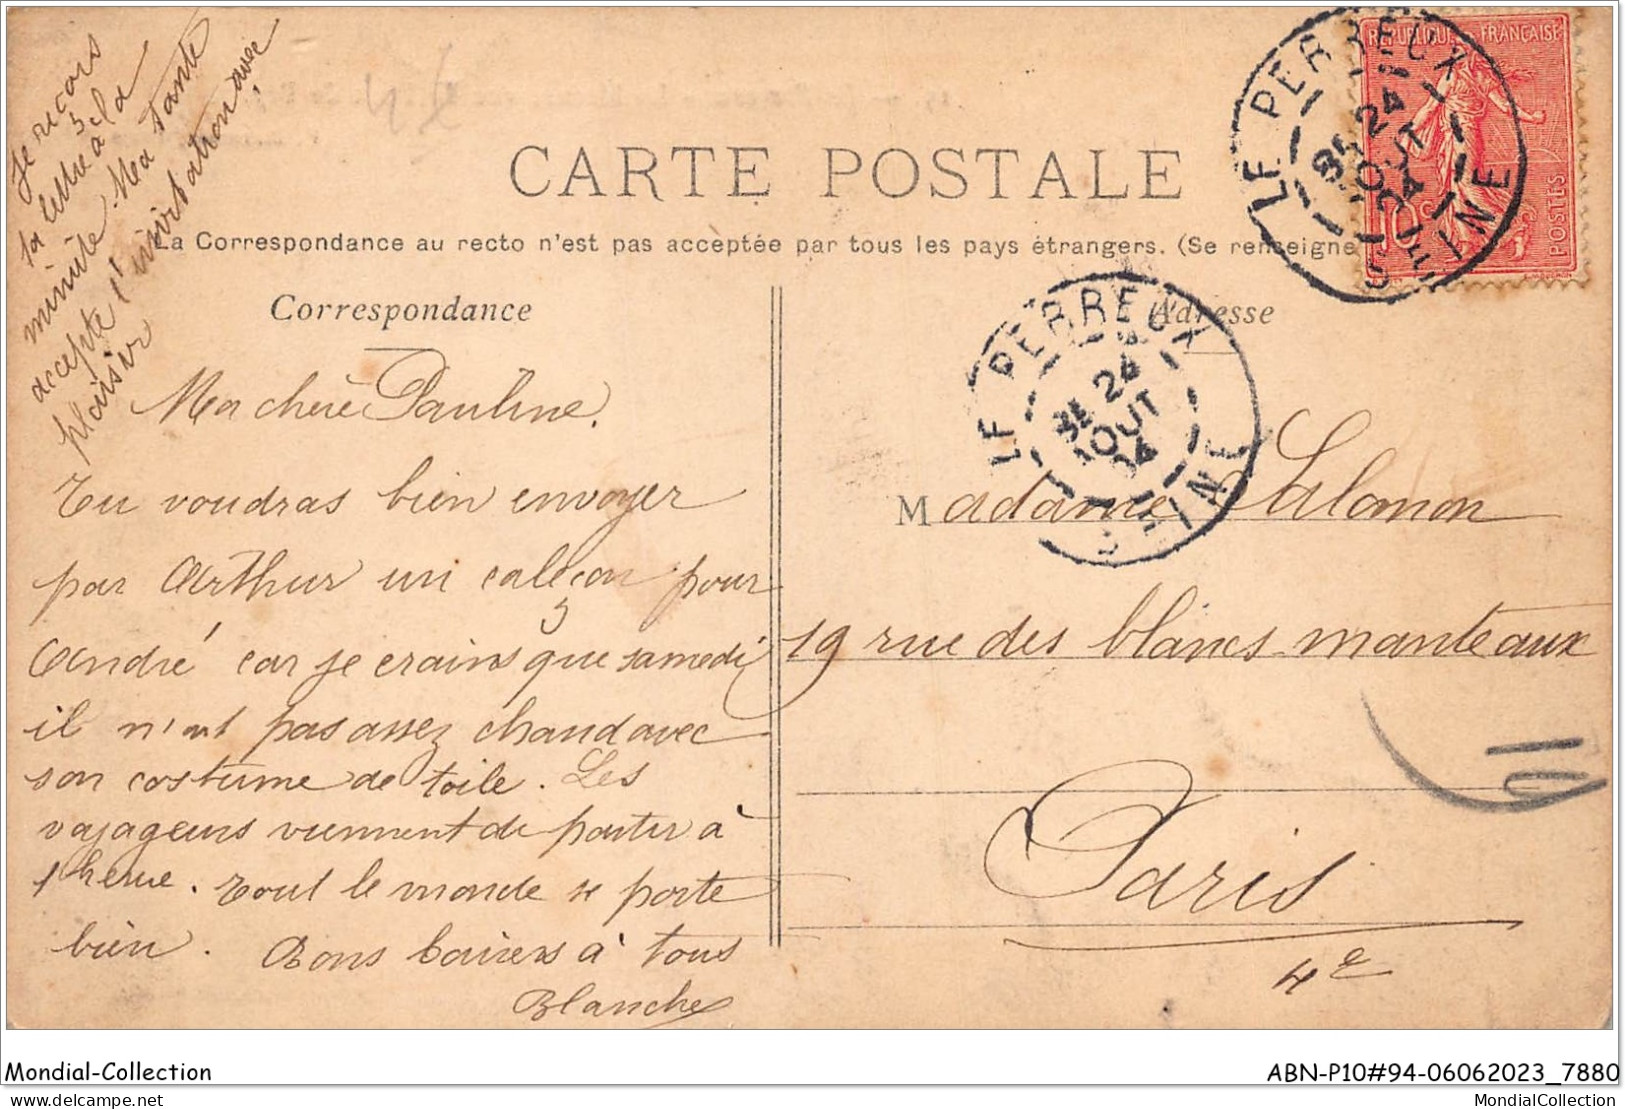 Je reçois
la lettre à la
minute. Ma tante
accepte l'invitation avec
plaisir
CARTE POSTALE
La Correspondance au recto n'est pas acceptée par tous les pays étrangers. (Se renseigne
Correspondance
Adresse
REPUBLIQUE FRANÇAISE
POSTES
10c
LE PERREUX
24
AOUT
04
SEINE
LE PERREUX
24
AOUT
04
SEINE
Ma chère Pauline.
Tu voudras bien envoyer
par Arthur un caleçon pour
André car je crains que samedi
il n'ait pas assez chaud avec
son costume de toile. Les
voyageurs viennent de partir à
1 heure. Tout le monde se porte
bien. Bons baisers à tous
Blanche
Madame Salomon
19 rue des blancs manteaux
Paris
4e
Mondial-Collection
ABN-P10#94-06062023_7880
delcampe.net
MondialCollection